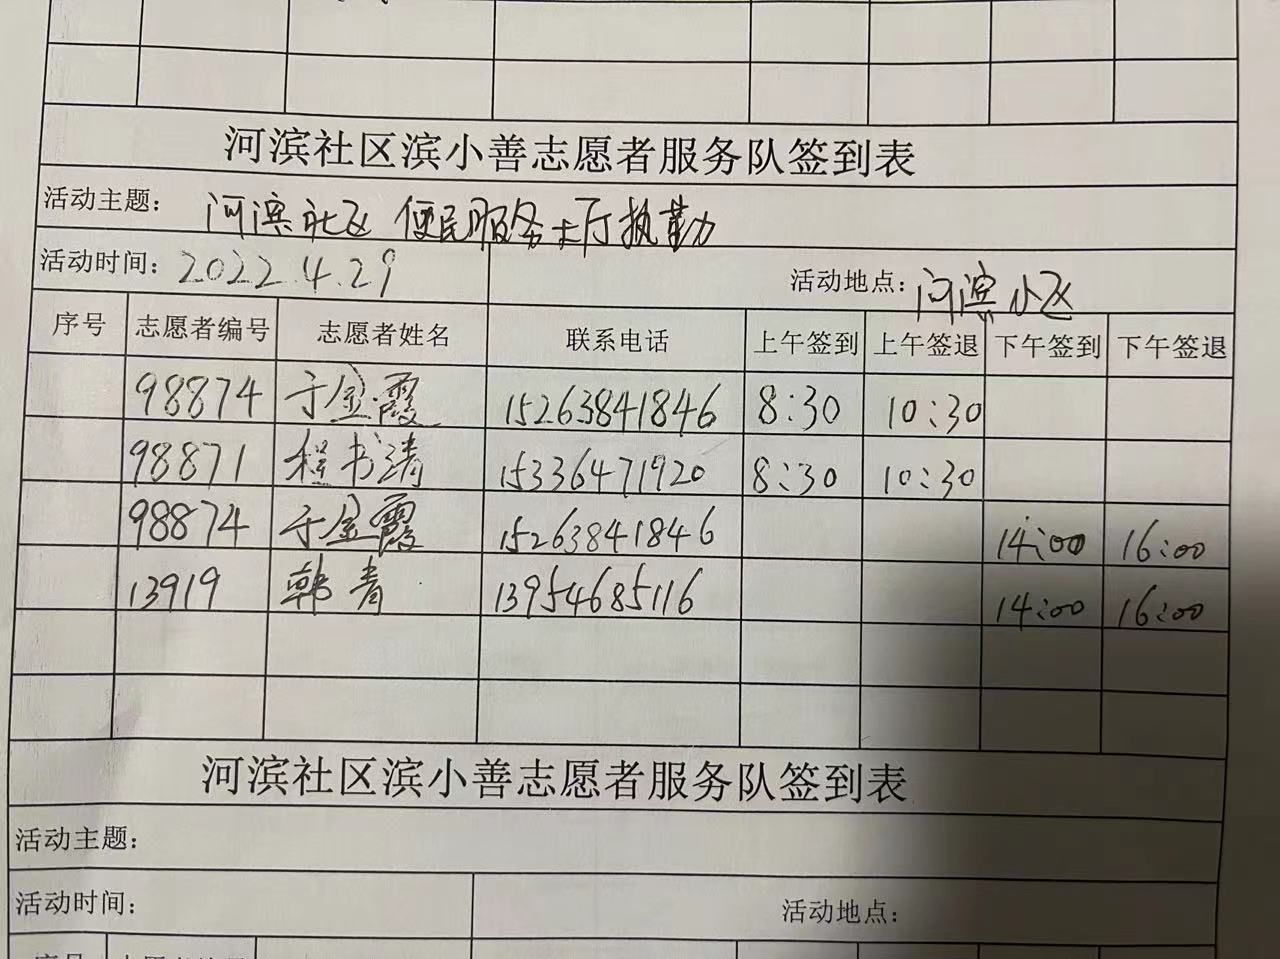 河滨社区滨小善志愿者服务队签到表
活动主题： 河滨社区 便民服务大厅执勤
活动时间：2022.4.29 活动地点：河滨小区
序号 志愿者编号 志愿者姓名 联系电话 上午签到 上午签退 下午签到 下午签退
98874 于金霞 15263841846 8:30 10:30
98871 程书涛 15336471920 8:30 10:30
98874 于金霞 15263841846 14:00 16:00
13919 韩青 13954685116 14:00 16:00
河滨社区滨小善志愿者服务队签到表
活动主题：
活动时间： 活动地点：